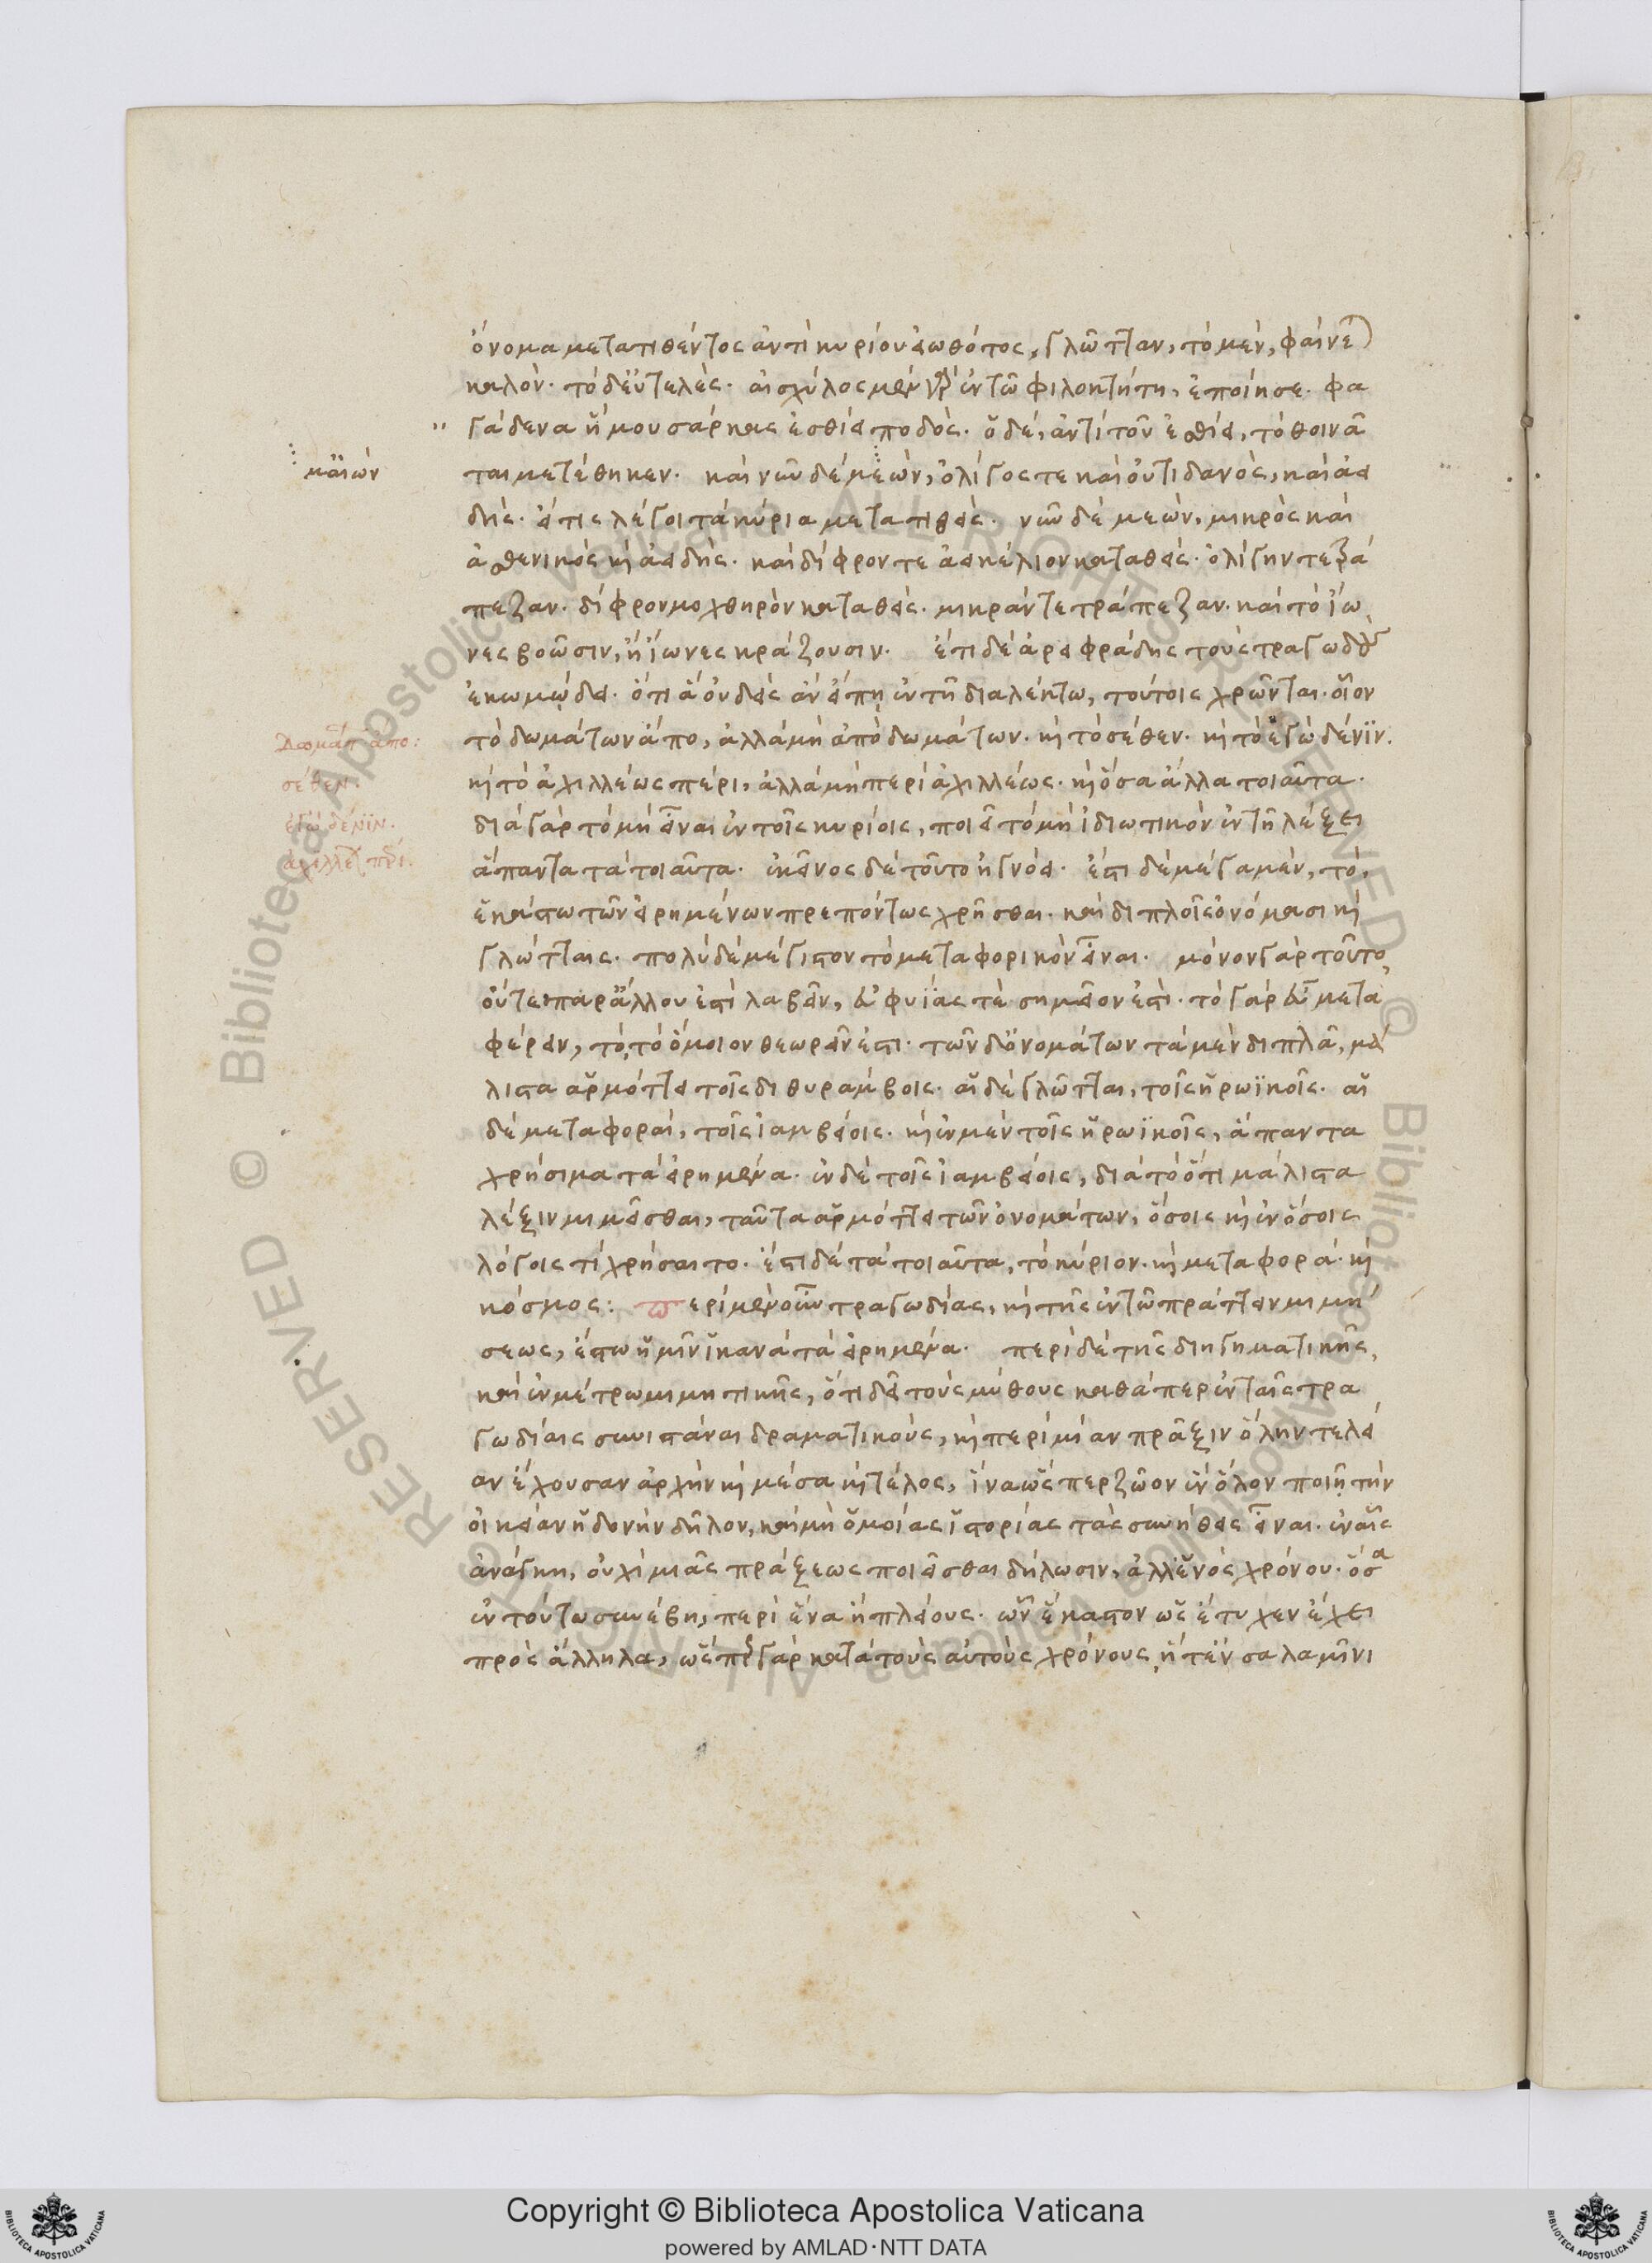 ὄνομα μετατιθέντος ἀντὶ κυρίου εἰωθότος, γλῶτταν, τὸ μὲν, φαίνε
καλόν· τὸ δ' εὐτελές· αἰσχύλος μὲν γὰρ ἐν τῶ φιλοκτήτη, ἐποίησε· φα
γάδενα ἥ μου σάρκας ἐσθίει ποδός· ὁ δὲ, ἀντὶ τοῦ ἐσθίει, τὸ θοινᾶ
μαιών
ται μετέθηκεν· καὶ νῦν δέ μεὼν, ὀλίγος τε καὶ οὐτιδανὸς, καὶ ἀει
δὴς· εἴ τις λέγοι τὰ κύρια μετατιθεὶς· νῦν δέ μεὼν, μικρὸς καὶ
ἀσθενικὸς κὶ ἀειδὴς· καὶ δίφρον τε ἀεικέλιον καταθεὶς· ὀλίγην τε τρά
πεζαν· δίφρον μοχθηρὸν καταθεὶς· μικράν τε τράπεζαν· καὶ τὸ ἰω
νες βοῶσιν, ἢ ἴωνες κράζουσιν· ἔτι δὲ ἀρειφράδης τοὺς τραγωδοὺς
ἐκωμῴδει· ὅτι ἃ οὐδεὶς ἂν εἴπῃ ἐν τῆ διαλέκτω, τούτοις χρῶνται· οἷον
τὸ δωμάτων ἄπο, ἀλλὰ μὴ ἀπὸ δωμάτων· κὶ τὸ σέθεν· κὶ τὸ ἐγὼ δέ νιν·
Δωμάτ ἀπο:
σέθεν·
ἐγὼ δέ νιν·
ἀχιλλε περι·
κὶ τὸ ἀχιλλέως πέρι, ἀλλὰ μὴ περὶ ἀχιλλέως· κὶ ὅσα ἄλλα τοιαῦτα·
διὰ γὰρ τὸ μὴ εἶναι ἐν τοῖς κυρίοις, ποιεῖ τὸ μὴ ἰδιωτικὸν ἐν τῆ λέξει
ἅπαντα τὰ τοιαῦτα· ἐκεῖνος δὲ τοῦτο ἠγνόει· ἔστι δὲ μέγα μὲν, τὸ,
ἑκάστω τῶν εἰρημένων πρεπόντως χρῆσθαι· καὶ διπλοῖς ὀνόμασι κὶ
γλώτταις· πολὺ δὲ μέγιστον τὸ μεταφορικὸν εἶναι· μόνον γὰρ τοῦτο,
οὔτε παρ' ἄλλου ἐστὶ λαβεῖν, εὐφυίας τὲ σημεῖον ἐστὶ· τὸ γὰρ εὖ μετα
φέρειν, τὸ, τὸ ὅμοιον θεωρεῖν ἐστι· τῶν δ' ὀνομάτων τὰ μὲν διπλᾶ, μά
λιστα ἁρμόττει τοῖς διθυράμβοις· αἱ δὲ γλῶτται, τοῖς ἡρωϊκοῖς· αἱ
δὲ μεταφοραὶ, τοῖς ἰαμβείοις· κὶ ἐν μὲν τοῖς ἡρωϊκοῖς, ἅπαντα
χρήσιμα τὰ εἰρημένα· ἐν δὲ τοῖς ἰαμβείοις, διὰ τὸ ὅτι μάλιστα
λέξιν μιμεῖσθαι, ταῦτα ἁρμόττει τῶν ὀνομάτων, ὅσοις κὶ ἐν ὅσοις
λόγοις τὶ χρήσαιτο· ἔστι δὲ τὰ τοιαῦτα, τὸ κύριον· κὶ μεταφορά· κὶ
κόσμος: περὶ μὲν οὖν τραγωδίας, κὶ τῆς ἐν τῶ πράττειν μιμή
σεως, ἔστω ἡμῖν ἱκανὰ τὰ εἰρημένα· περὶ δὲ τῆς διηγηματικῆς,
καὶ ἐν μέτρω μιμητικῆς, ὅτι δεῖ τοὺς μύθους καθάπερ ἐν ταῖς τρα
γωδίαις συνιστάναι δραματικοὺς, κὶ περὶ μίαν πρᾶξιν ὅλην τελεί
αν ἔχουσαν ἀρχὴν κὶ μέσα κὶ τέλος, ἵνα ὥσπερ ζῶον ἓν ὅλον ποιῇ τὴν
οἰκείαν ἡδονὴν δῆλον, καὶ μὴ ὁμοίας ἱστορίας τὰς συνήθεις εἶναι· ἐν αἷς
ἀνάγκη, οὐχὶ μιᾶς πράξεως ποιεῖσθαι δήλωσιν, ἀλλ' ἑνὸς χρόνου· ὅσα
ἐν τούτω συνέβη, περὶ ἕνα ἢ πλείους· ὧν ἕκαστον ὡς ἔτυχεν ἔχει
πρὸς ἄλληλα, ὥσπερ γὰρ κατὰ τοὺς αὐτοὺς χρόνους ἥ τ' ἐν σαλαμῖνι
Copyright © Biblioteca Apostolica Vaticana
powered by AMLAD·NTT DATA